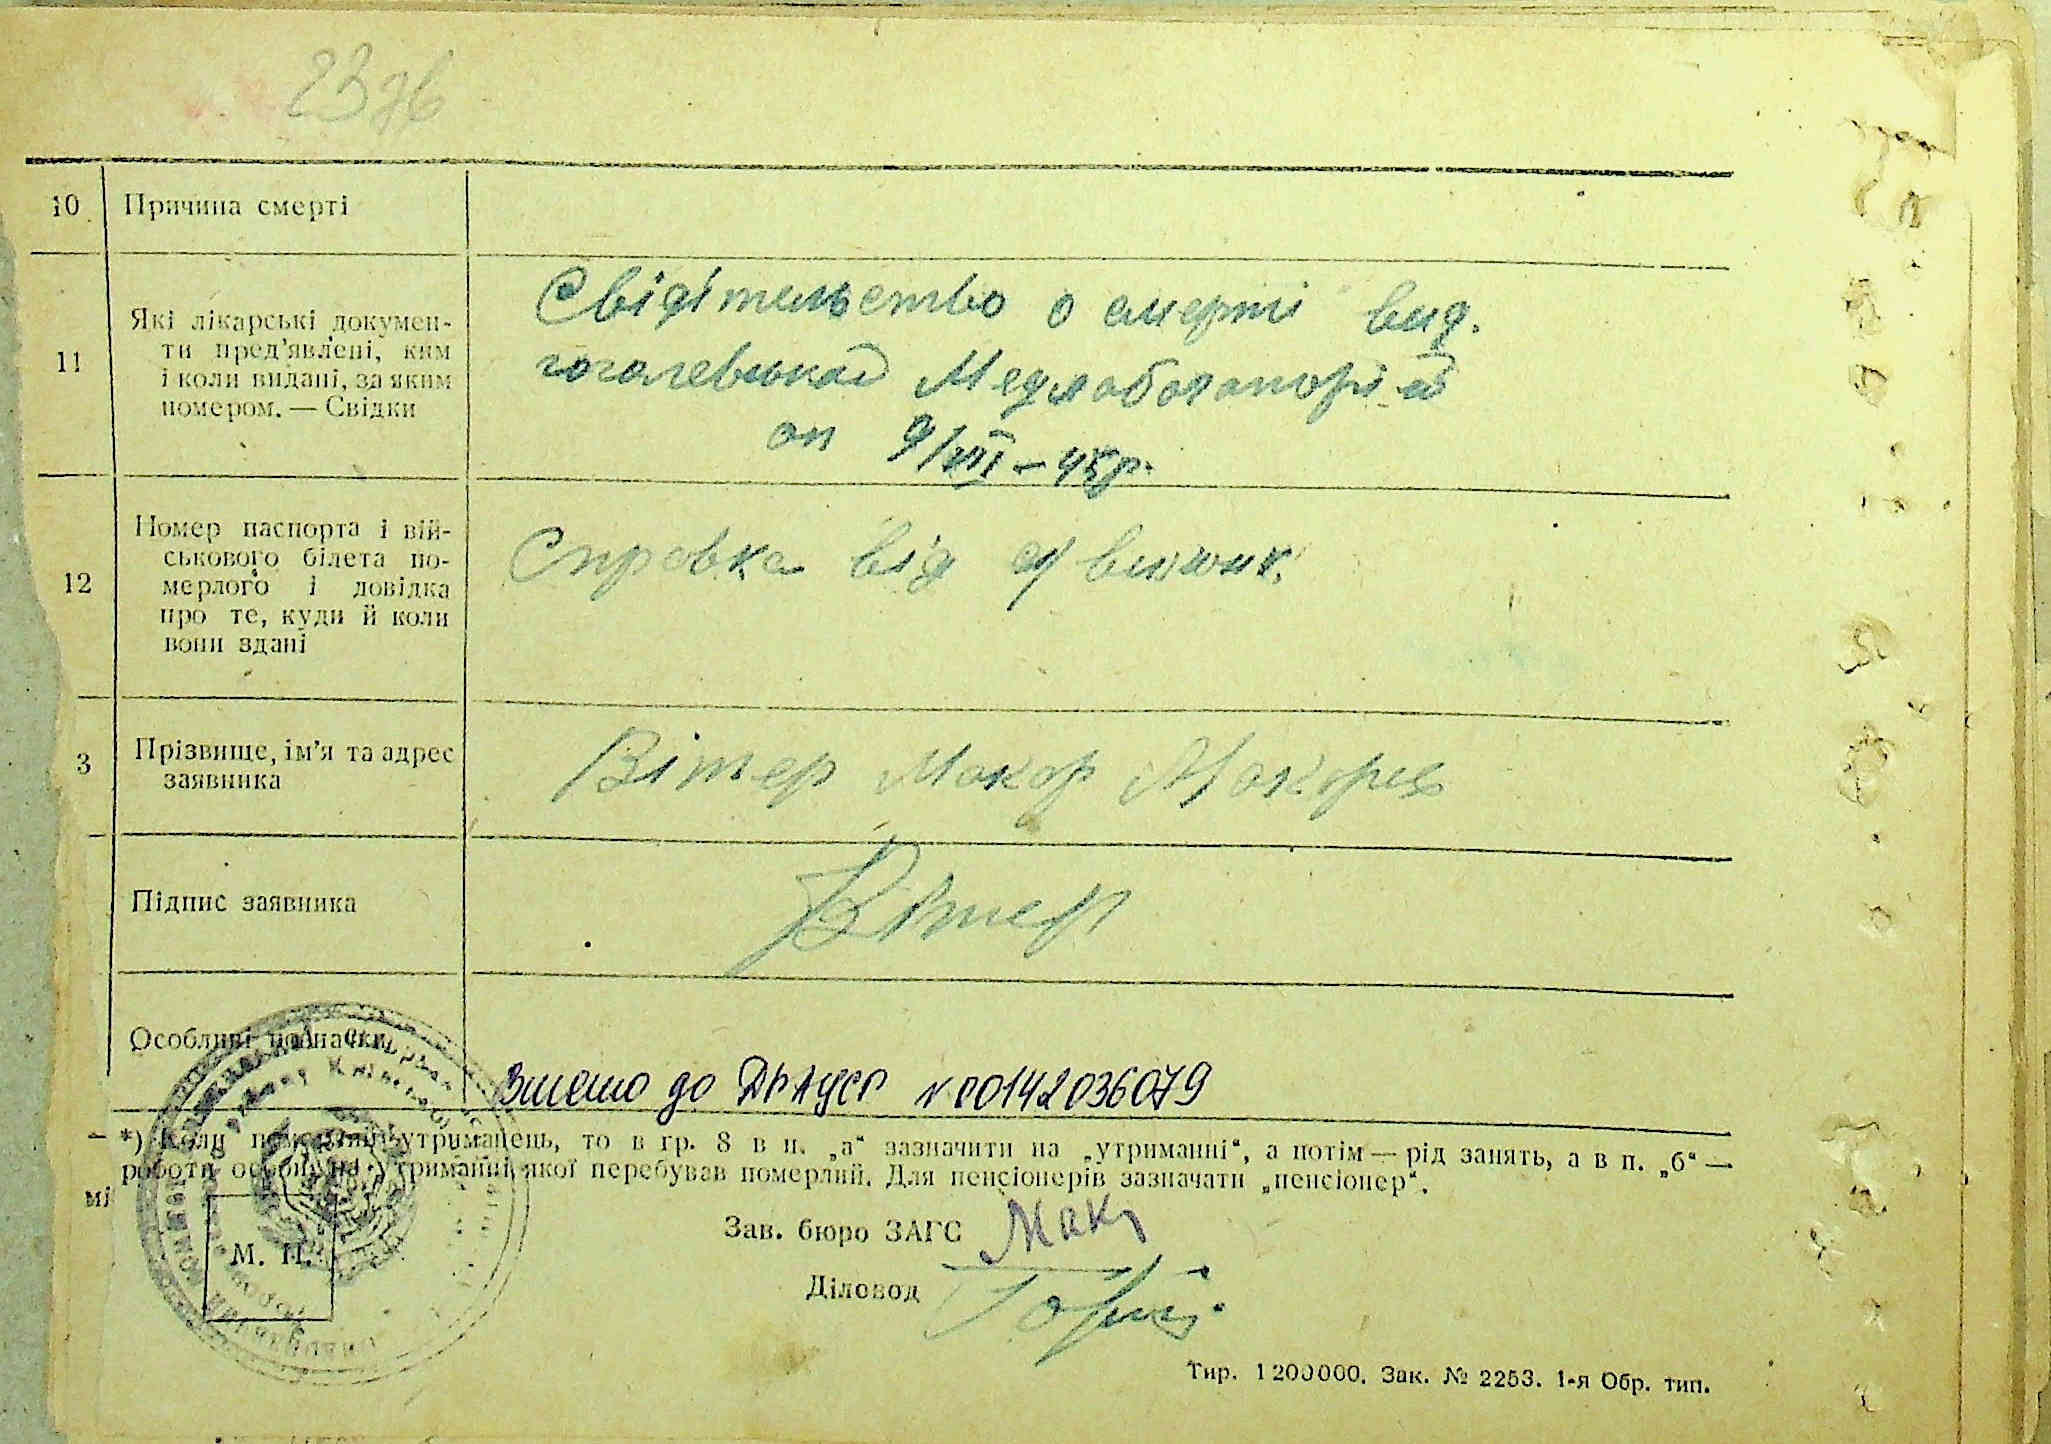 10 Причина смерті
11 Які лікарські докумен-
ти пред'явлені, ким
і коли видані, за яким
номером. — Свідки
Свідітельство о смерті вид.
гоголевської Медлаболаторією
от 9/VIII – 45 р.
12 Номер паспорта і вій-
ськового білета по-
мерлого і довідка
про те, куди й коли
вони здані
Справка від
3 Прізвище, ім'я та адрес
заявника
Вітер Макар Макарев
Підпис заявника
Вітер
Особливі позначки
Внесено до ДРАЦСГ № 00142036079
*) Коли померлий утриманець, то в гр. 8 в п. „а“ зазначити на „утриманні“, а потім — рід занять, а в п. „б“ —
роботи особи, на утриманні якої перебував померлий. Для пенсіонерів зазначати „пенсіонер“.
мі
М. П.
Зав. бюро ЗАГС
Діловод
Тир. 1200000. Зак. № 2253. 1-я Обр. тип.